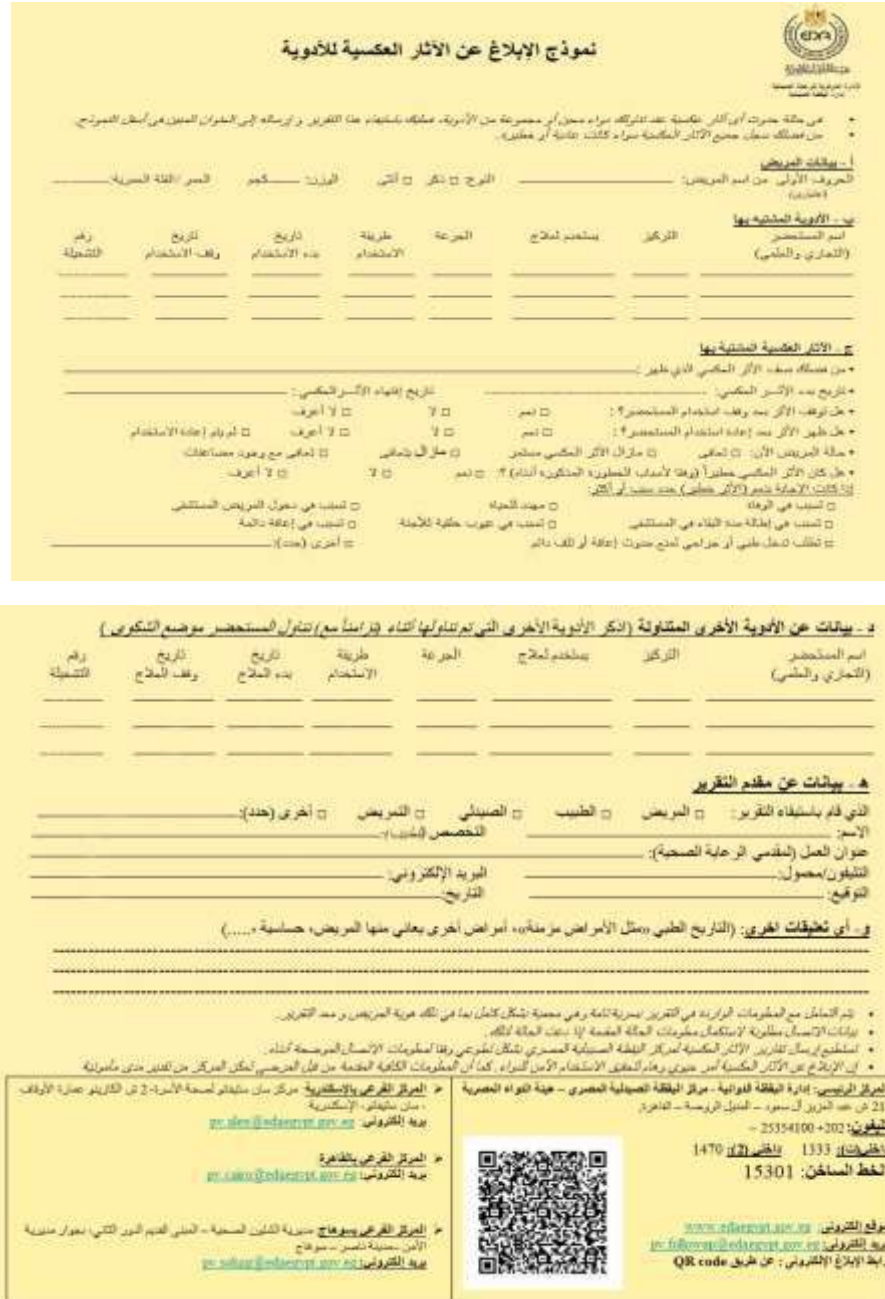 EDA
نموذج الإبلاغ عن الآثار العكسية للأدوية
في حالة حدوث أى آثار عكسية عند تناولك دواء معين أو مجموعة من الأدوية، عليك باستيفاء هذا التقرير و إرساله إلى العنوان المبين في أسفل النموذج.
من فضلك سجل جميع الآثار العكسية سواء كانت عادية أو خطيرة.
أ - بيانات المريض
الحروف الأولى من اسم المريض: النوع □ ذكر □ أنثى الوزن: كجم العمر /الفئة العمرية:
(اختياري)
ب - الأدوية المشتبه بها
اسم المستحضر التركيز يستخدم لعلاج الجرعة طريقة تاريخ تاريخ رقم
(التجاري والعلمي) الاستخدام بدء الاستخدام وقف الاستخدام التشغيلة
ج - الآثار العكسية المشتبه بها
• من فضلك صف الأثر العكسي الذي ظهر :
• تاريخ بدء الأثر العكسي: تاريخ إنتهاء الأثر العكسي :
• هل توقف الأثر بعد وقف استخدام المستحضر؟ : □ نعم □ لا □ لا أعرف
• هل ظهر الأثر بعد إعادة استخدام المستحضر؟ : □ نعم □ لا □ لا أعرف □ لم يتم إعادة الاستخدام
• حالة المريض الآن: □ تعافى □ مازال الأثر العكسي مستمر □ مازال يتعافى □ تعافى مع وجود مضاعفات
• هل كان الأثر العكسي خطيراً (وفقا لأسباب الخطورة المذكورة أدناه) ؟: □ نعم □ لا □ لا أعرف
إذا كانت الاجابة بنعم (الأثر خطير) حدد سبب أو أكثر:
□ تسبب في الوفاة □ مهدد للحياة □ تسبب في دخول المريض المستشفى
□ تسبب في إطالة مدة البقاء في المستشفى □ تسبب في عيوب خلقية للأجنة □ تسبب في إعاقة دائمة
□ تطلب تدخل طبي أو جراحي لمنع حدوث إعاقة أو تلف دائم □ أخرى (حدد):
د - بيانات عن الأدوية الأخرى المتناولة (اذكر الأدوية الأخرى التي تم تناولها أثناء (تزامناً مع) تناول المستحضر موضع الشكوى )
اسم المستحضر التركيز يستخدم لعلاج الجرعة طريقة تاريخ تاريخ رقم
(التجاري والعلمي) الاستخدام بدء العلاج وقف العلاج التشغيلة
ه - بيانات عن مقدم التقرير
الذي قام باستيفاء التقرير: □ المريض □ الطبيب □ الصيدلي □ التمريض □ أخرى (حدد):
الاسم: التخصص
عنوان العمل (لمقدمي الرعاية الصحية):
التليفون/محمول: البريد الإلكتروني:
التوقيع: التاريخ:
و - أي تعليقات اخرى: (التاريخ الطبي «مثل الأمراض مزمنة»، أمراض أخرى يعاني منها المريض، حساسية ،.....)
يتم التعامل مع المعلومات الواردة في التقرير بسرية تامة وهي محمية بشكل كامل بما في ذلك هوية المريض و معد التقرير.
بيانات الاتصال مطلوبة لاستكمال معلومات الحالة المقدمة إذا دعت الحالة لذلك.
تستطيع إرسال تقارير الآثار العكسية لمركز اليقظة الصيدلية المصري بشكل تطوعي وفقا لمعلومات الاتصال الموضحة أدناه.
إن الإبلاغ عن الآثار العكسية أمر حيوي وهام لتحقيق الاستخدام الآمن للدواء . كما أن المعلومات الكافية المقدمة من قبل المرضى تمكن المركز من تقدير مدى مأمونية
المركز الرئيسي: إدارة اليقظة الدوائية - مركز اليقظة الصيدلية المصري – هيئة الدواء المصرية
21 ش عبد العزيز آل سعود – المنيل الروضة – القاهرة.
تليفون: 202+ 25354100 –
1333 داخلي (2): 1470
الخط الساخن: 15301
موقع إلكتروني: www.edaegypt.gov.eg
بريد إلكتروني: pv.followup@edaegypt.gov.eg
رابط الإبلاغ الإلكتروني : عن طريق QR code
المركز الفرعي بالإسكندرية: مركز سان ستيفانو لصحة الأسرة- 2 ش الكازينو عمارة الأوقاف
، سان ستيفانو- الإسكندرية
بريد إلكتروني: pv.alex@edaegypt.gov.eg
المركز الفرعي بالقاهرة
بريد إلكتروني: pv.cairo@edaegypt.gov.eg
المركز الفرعي بسوهاج: مديرية الشئون الصحية – المبنى القديم الدور الثاني- بجوار مديرية
الأمن -مدينة ناصر – سوهاج
بريد إلكتروني: pv.sohag@edaegypt.gov.eg